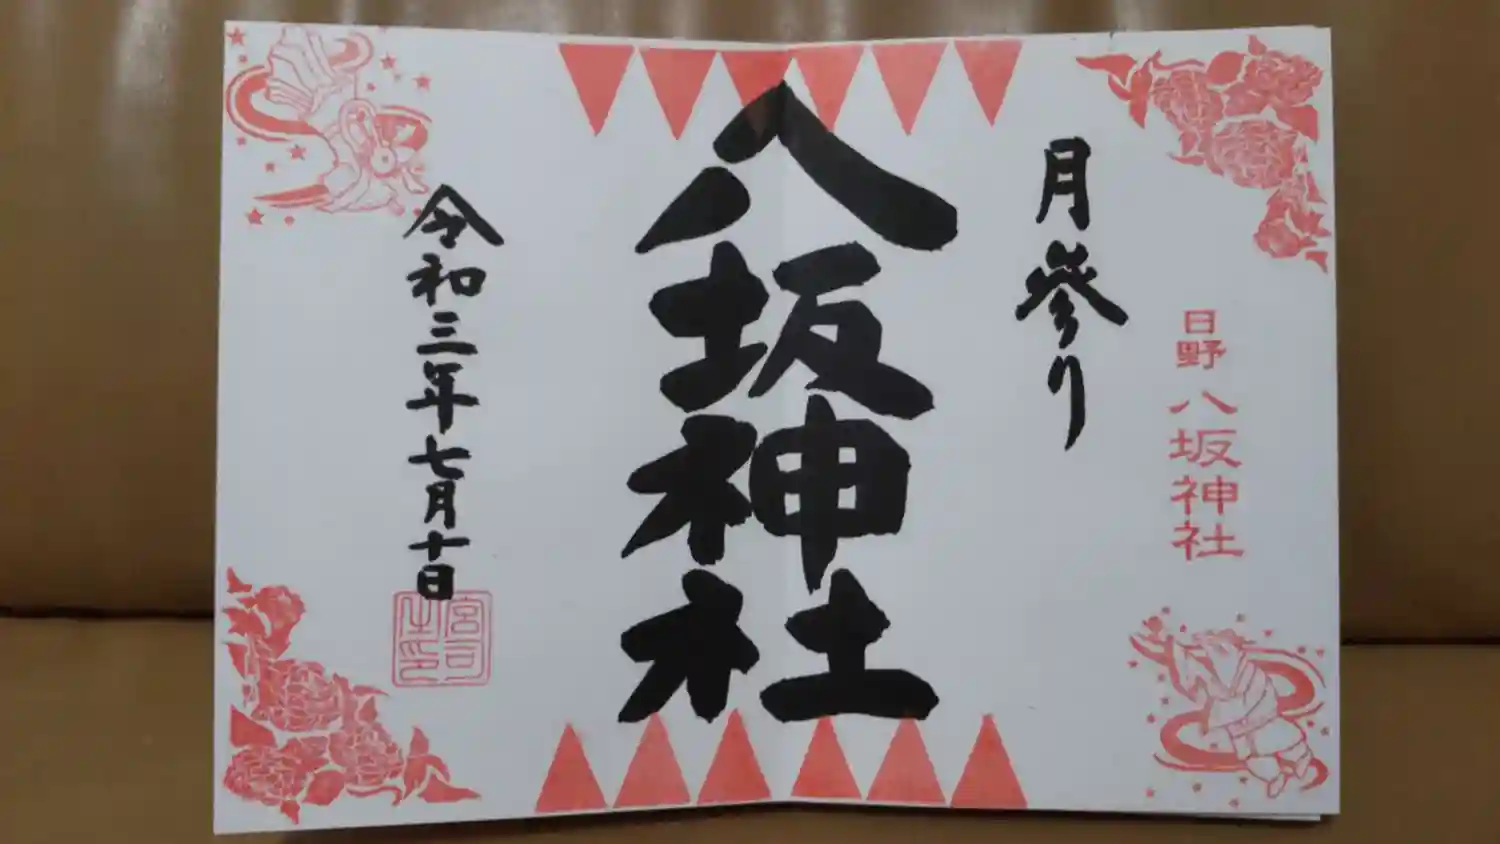 日野
八坂神社
月参り
八坂神社
令和三年七月十日
宮司之印